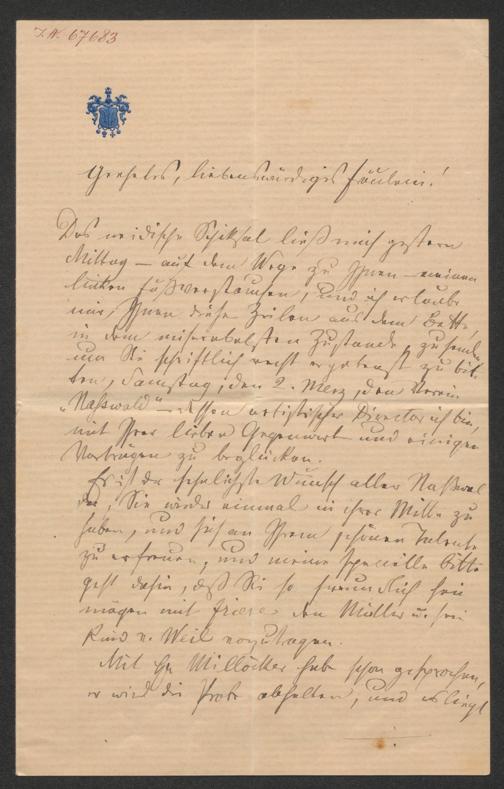 I.N. 67683
Geehrtes, liebenswürdiges Fräulein!
Das neidische Schiksal ließ mich gestern
Mittag – auf dem Wege zu Ihnen – meinen
linken Fuß verstauchen, und ich erlaube
mir, Ihnen diese Zeilen aus dem Bette,
in dem miserabelsten Zustande, zu senden,
um Sie schriftlich recht ergebenst zu bit-
ten, Samstag, den 2. März, den Verein
„Naßwald“ – dessen artistischer Director ich bin,
mit Ihrer lieben Gegenwart und einigen
Vorträgen zu beglücken.
Es ist der sehnlichste Wunsch aller Naßwal-
der, Sie wieder einmal in ihrer Mitte zu
haben, und sich an Ihrem schönen Talente
zu erfreuen, und meine specielle Bitte
geht dahin, daß Sie so freundlich sein
mögen mit den Müller u. sein
Kind v. Weil vorzutragen.
Mit H. Millöcker hab schon gesprochen,
er wird die Probe abhalten, und es liegt